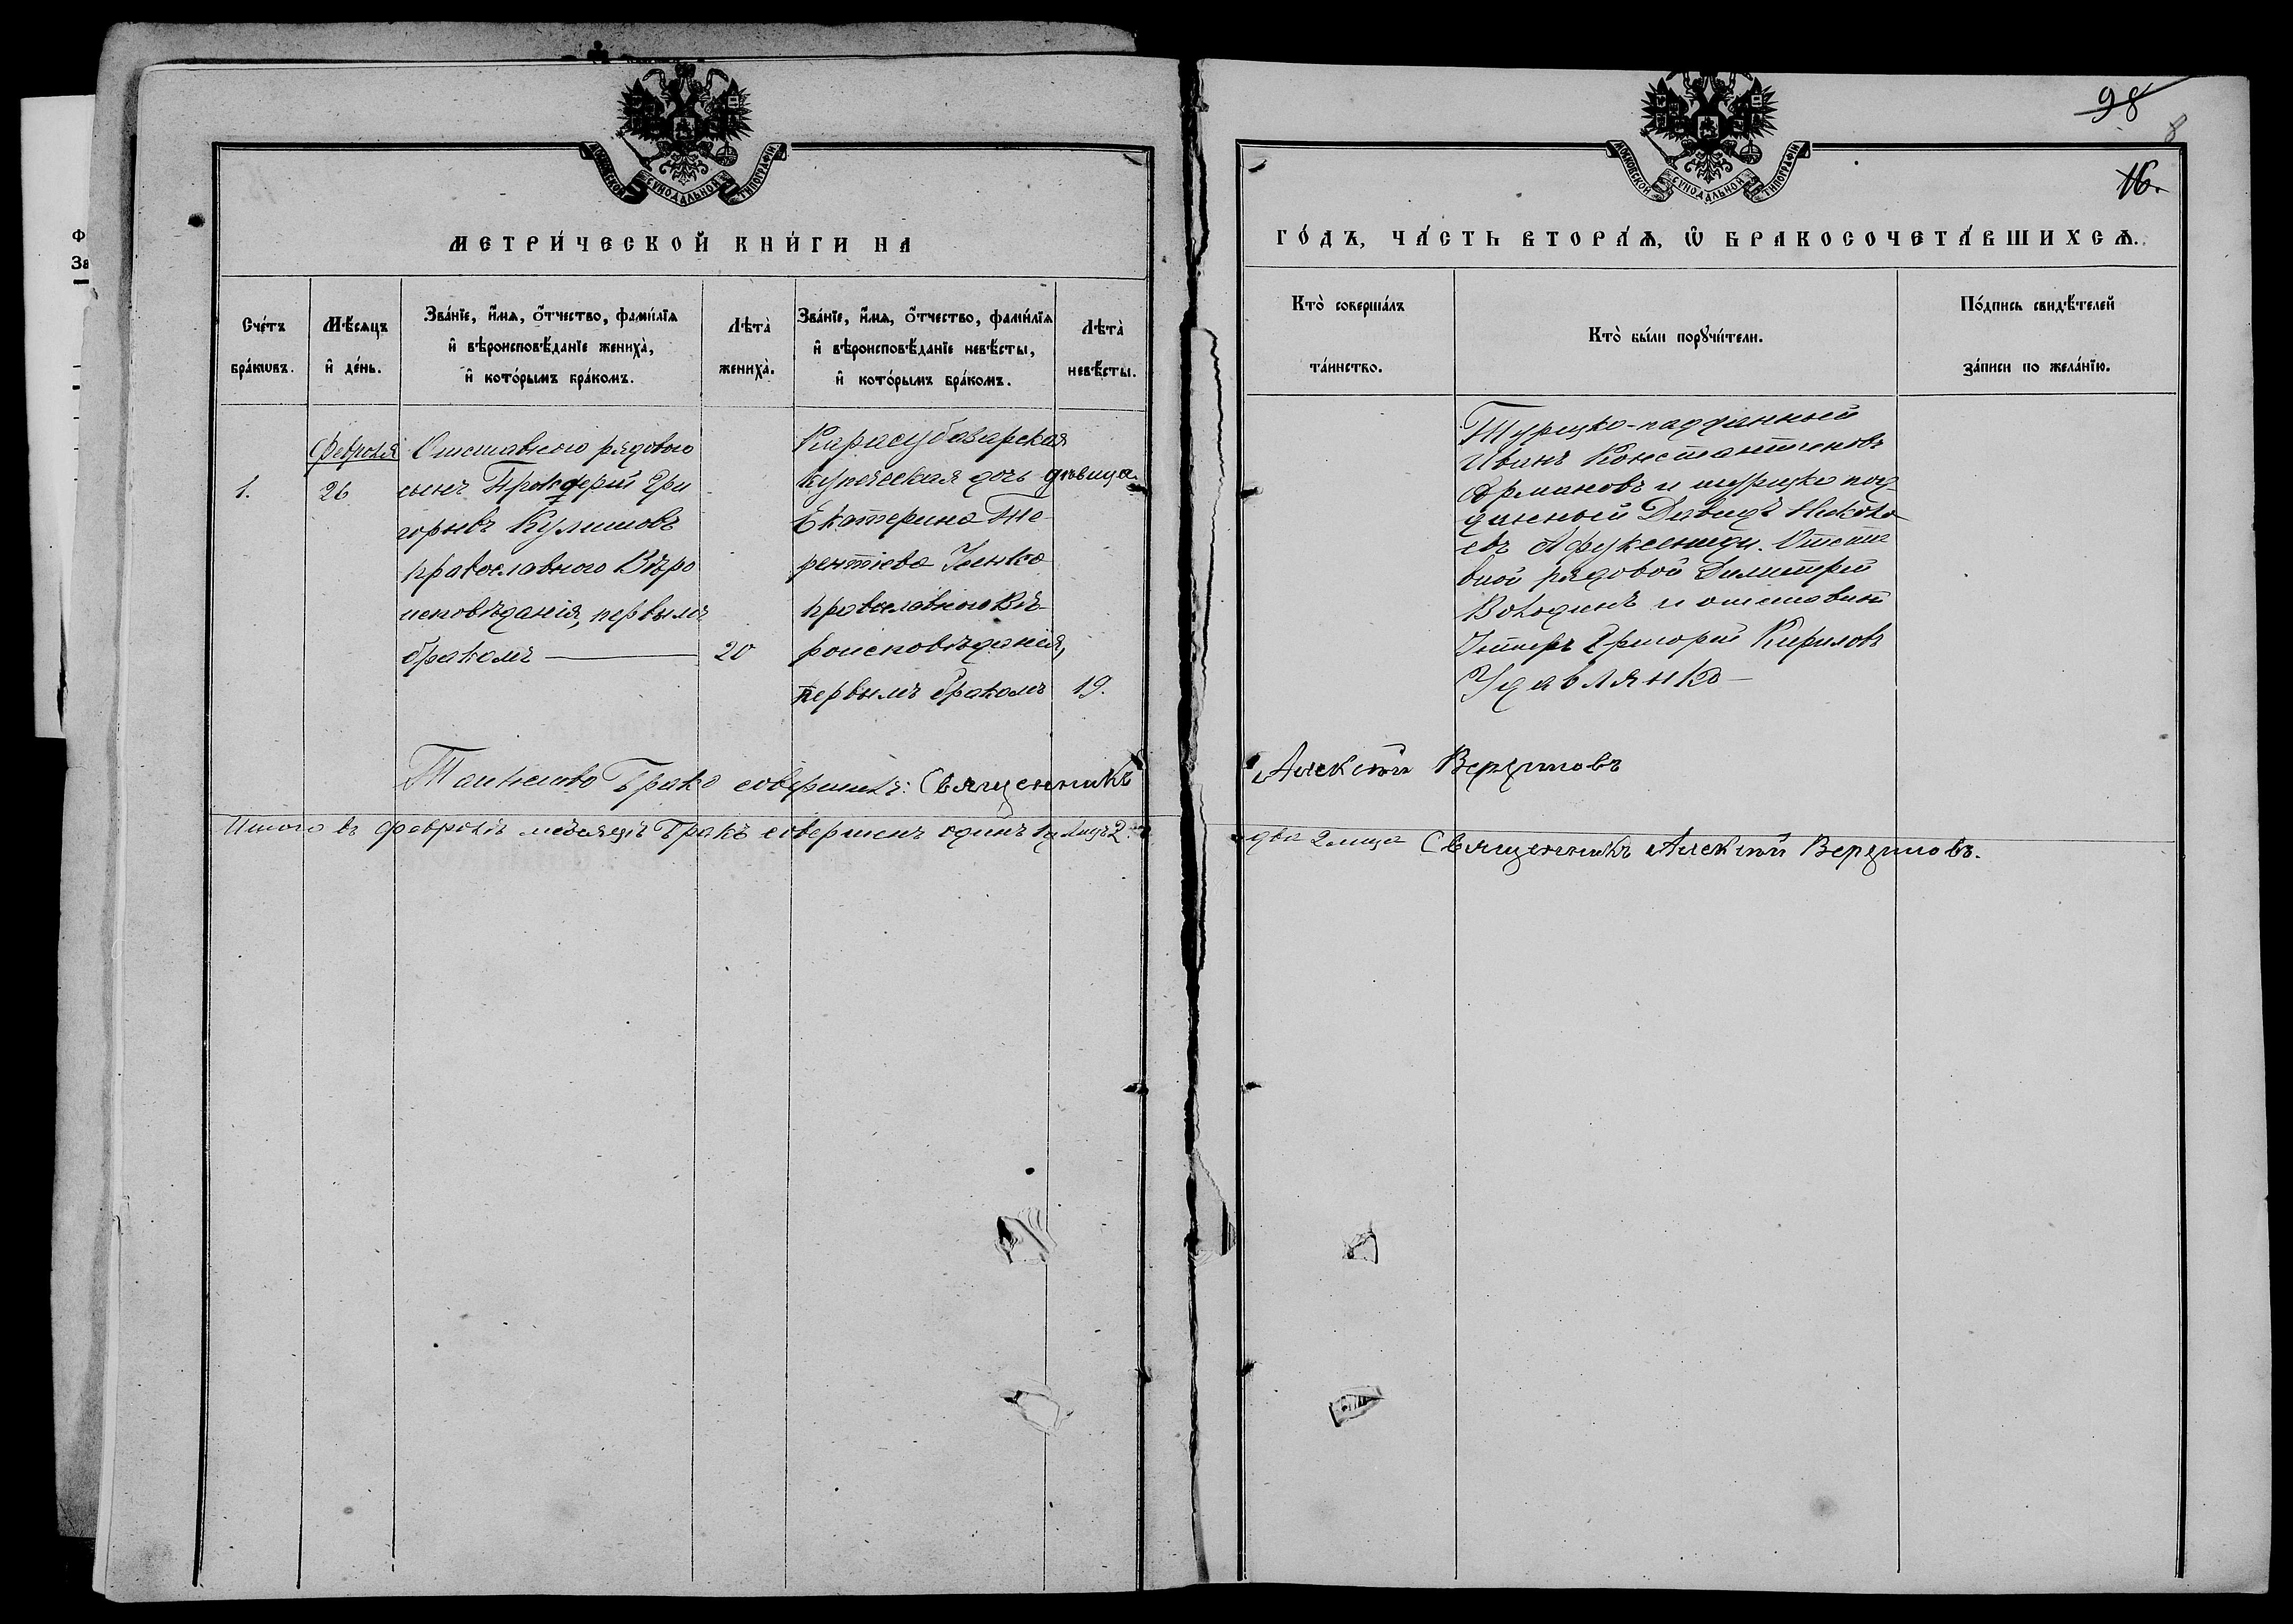 98
8
16.
МОСКОВСКОЙ СУНОДАЛЬНОЙ ТИПОГРАФІИ
МОСКОВСКОЙ СУНОДАЛЬНОЙ ТИПОГРАФІИ
МЕТРИ́ЧЕСКОЙ КНИ́ГИ НА
ГО́ДЪ, ЧА́СТЬ ВТОРА́Ѧ, Ѽ БРАКОСОЧЕТА́ВШИХСѦ.
Сче́тъ
бра́кѡвъ.
Мѣ́сяцъ
и҆ де́нь.
Зва́нїе, и҆́мѧ, ѻ҆́тчество, фами́лїѧ
и҆ вѣроисповѣ́данїе жениха̀,
и҆ кото́рымъ бра́комъ.
Лѣта̀
жениха̀.
Зва́нїе, и҆́мѧ, ѻ҆́тчество, фами́лїѧ
и҆ вѣроисповѣ́данїе невѣ́сты,
и҆ кото́рымъ бра́комъ.
Лѣта̀
невѣ́сты.
Кто̀ соверша́лъ
та́инство.
Кто̀ бы́ли порꙋчи́тели.
По́дпись свидѣ́телей
за́писи по жела́нїю.
1.
Февраля
26
Отставного рядового
сынъ Прокферій Гри
горьевъ Кулишовъ
православного Вѣро
исповѣданія, первымъ
бракомъ
20
Карасубазарская
купеческая дочь дѣвица
Екатерина Те
рентіева
православного Вѣ-
роисповѣданія,
первымъ бракомъ
19.
Турецко-подданный
Иванъ Константиновъ
Армановъ и турецко под
данный Давидъ Никола
евъ Отста
вной рядовой Димитрій
Володинъ и отставной
Григорій Кириловъ
Удавлянко
Таинство Брака совершилъ: Священникъ Алексій Верещиновъ
Итого въ Февралѣ мѣсяцѣ Бракъ совершенъ одинъ 1 2
два 2 лица Священникъ Алексій Верещиновъ.